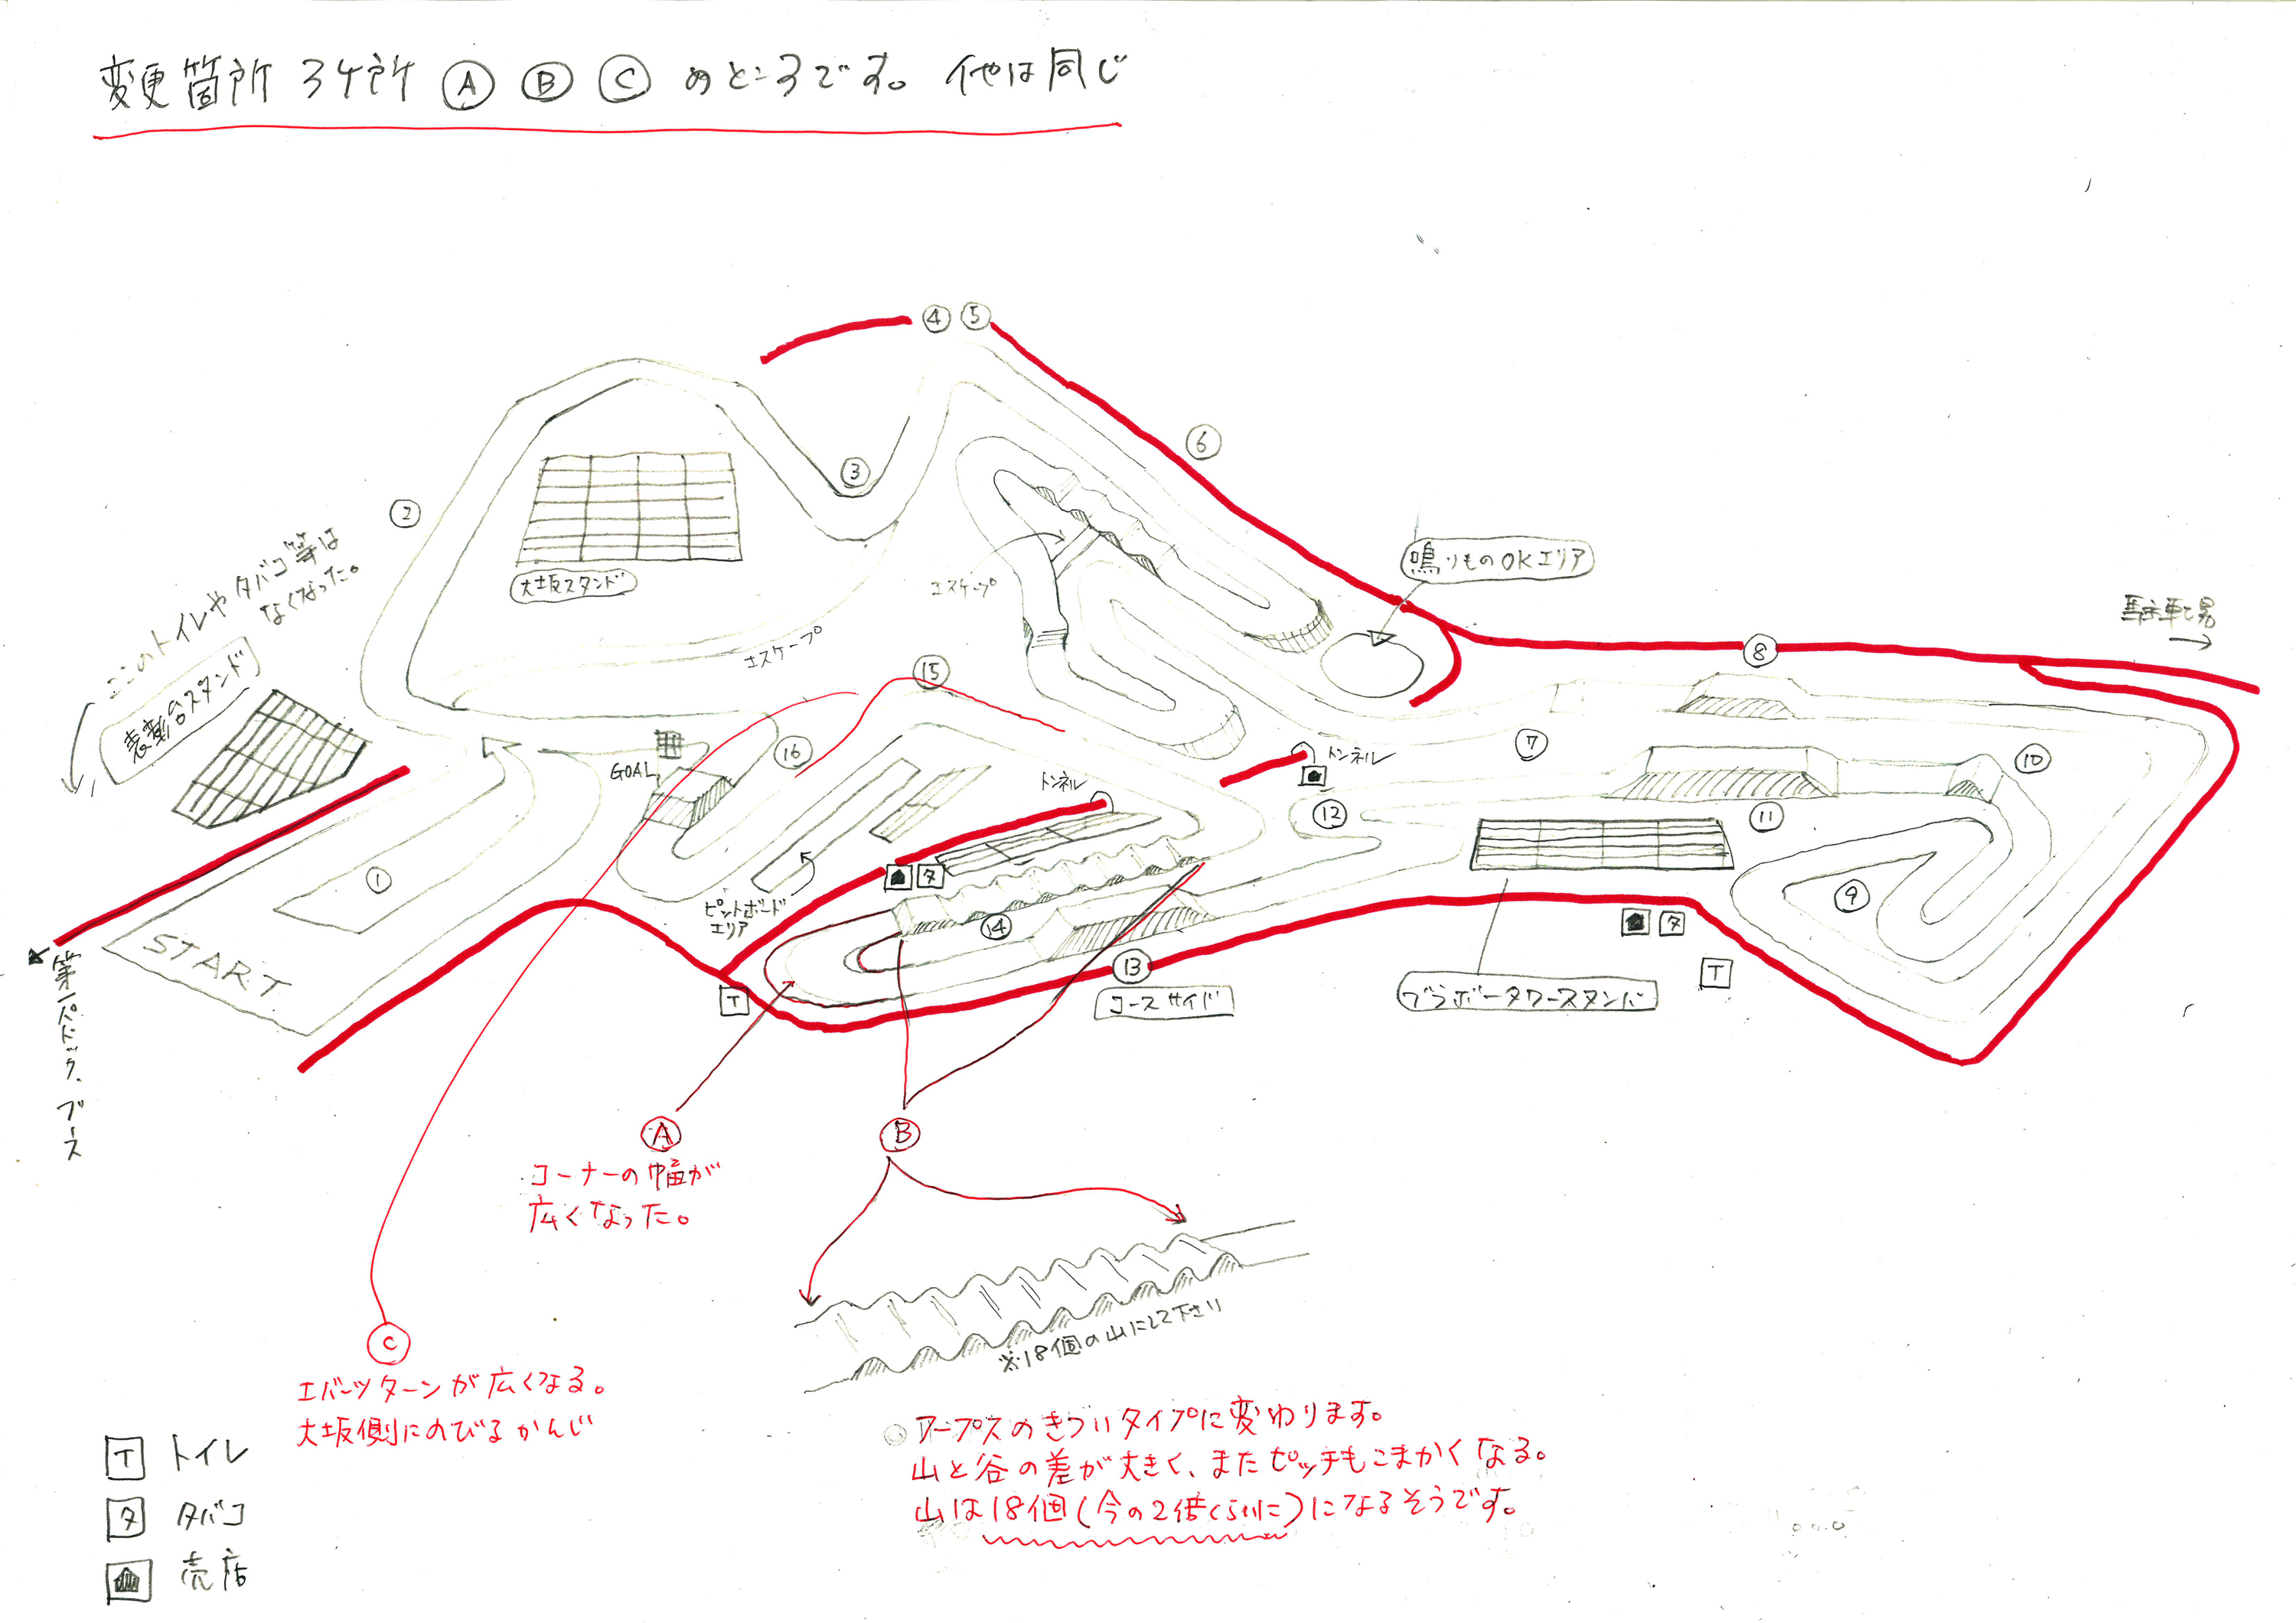 変更箇所 3ケ所 Ⓐ Ⓑ Ⓒ のところです。他は同じ
④ ⑤
⑥
③
②
ここのトイレやタバコ等は
なくなった。
表彰台スタンド
大坂スタンド
エスケープ
エスケープ
鳴りものOKエリア
駐車場
→
⑧
⑮
⑯
GOAL
トンネル
トンネル
⑦
⑩
⑫
⑪
①
START
タ
ピットボード
エリア
⑭
⑨
タ
⑬
T
T
コースサイド
ブラボータワースタンド
第1パドック、ブース
Ⓐ
コーナーの幅が
広くなった。
Ⓑ
※18個の山にして下さい
Ⓒ
エバーツターンが広くなる。
大坂側にのびるかんじ
ウープスのきついタイプに変わります。
山と谷の差が大きく、またピッチもこまかくなる。
山は18個(今の2倍くらいに)になるそうです。
T トイレ
タ タバコ
売店